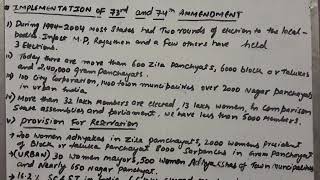 IMPLEMENTATION OF 73rd and 74th AMMENDMENT
i) During 1994-2004 most States had Two rounds of election to the local-
bodies. Infact M.P, Rajasthan and a Few others have held
3 Elections.
ii) Today there are more than 600 Zila panchayats, 6000 block or Talukas
and 2,40,000 Gram panchayats.
iii) 100 City corporation, 1400 town municipalities over 2000 Nagar Panchayats
in urban India.
iv) More than 32 lakh members are elected, 13 lakh women, In comparison
State assemblies and parliament, we have less than 5000 members.
v) PROVISION FOR Reservation
200 women Adhyakshas in Zila panchayats, 2000 womens President
of Block or Taluka panchayat 8000 Sarpanches in Gram panchayat
(URBAN) 30 Women Mayors, 500 women Adhyakshas of Town municipalities
and Nearly 650 Nagar panchayat.